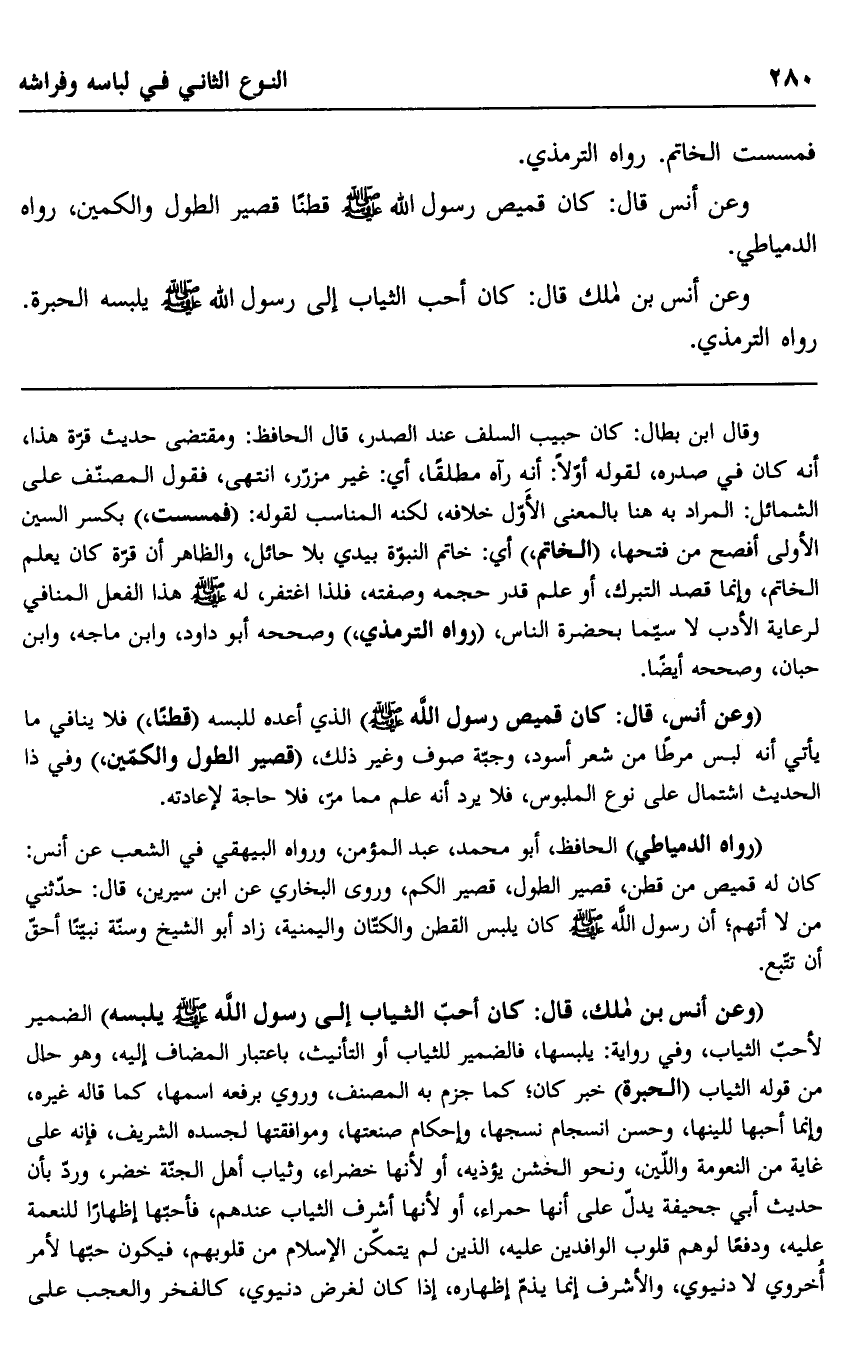 ٢٨٠ النوع الثاني في لباسه وفراشه
فمسست الخاتم. رواه الترمذي.
وعن أنس قال: كان قميص رسول الله ﷺ قطنًا قصير الطول والكمين، رواه
الدمياطي.
وعن أنس بن مٰلك قال: كان أحب الثياب إلى رسول الله ﷺ يلبسه الحبرة.
رواه الترمذي.
وقال ابن بطال: كان حبيب السلف عند الصدر، قال الحافظ: ومقتضى حديث قرّة هذا،
أنه كان في صدره، لقوله أوّلاً: أنه رآه مطلقًا، أي: غير مزرّر، انتهى، فقول المصنّف على
الشمائل: المراد به هنا بالمعنى الأَوّل خلافه، لكنه المناسب لقوله: (فمسست،) بكسر السين
الأولى أفصح من فتحها، (الخاتم،) أي: خاتم النبوّة بيدي بلا حائل، والظاهر أن قرّة كان يعلم
الخاتم، وإنما قصد التبرك، أو علم قدر حجمه وصفته، فلذا اغتفر، له ﷺ هذا الفعل المنافي
لرعاية الأدب لا سيّما بحضرة الناس، (رواه الترمذي،) وصححه أبو داود، وابن ماجه، وابن
حبان، وصححه أيضًا.
(وعن أنس، قال: كان قميص رسول اللَّه ﷺ) الذي أعده للبسه (قطنًا،) فلا ينافي ما
يأتي أنه لبس مرطًا من شعر أسود، وجبّة صوف وغير ذلك، (قصير الطول والكمّين،) وفي ذا
الحديث اشتمال على نوع الملبوس، فلا يرد أنه علم مما مرّ، فلا حاجة لإعادته.
(رواه الدمياطي) الحافظ، أبو محمد، عبد المؤمن، ورواه البيهقي في الشعب عن أنس:
كان له قميص من قطن، قصير الطول، قصير الكم، وروى البخاري عن ابن سيرين، قال: حدّثني
من لا أتهم؛ أن رسول اللَّه ﷺ كان يلبس القطن والكتّان واليمنية، زاد أبو الشيخ وسنّة نبيّنًا أحقّ
أن تتّبع.
(وعن أنس بن مٰلك، قال: كان أحبّ الثياب إلى رسول اللَّه ﷺ يلبسه) الضمير
لأحبّ الثياب، وفي رواية: يلبسها، فالضمير للثياب أو التأنيث، باعتبار المضاف إليه، وهو حال
من قوله الثياب (الحبرة) خبر كان؛ كما جزم به المصنف، وروي برفعه اسمها، كما قاله غيره،
وإنما أحبها للينها، وحسن انسجام نسجها، وإحكام صنعتها، وموافقتها لجسده الشريف، فإنه على
غاية من النعومة واللّين، ونحو الخشن يؤذيه، أو لأنها خضراء، وثياب أهل الجنّة خضر، وردّ بأن
حديث أبي جحيفة يدلّ على أنها حمراء، أو لأنها أشرف الثياب عندهم، فأحبّها إظهارًا للنعمة
عليه، ودفعًا لوهم قلوب الوافدين عليه، الذين لم يتمكّن الإسلام من قلوبهم، فيكون حبّها لأمر
أُخروي لا دنيوي، والأشرف إنما يذمّ إظهاره، إذا كان لغرض دنيوي، كالفخر والعجب على